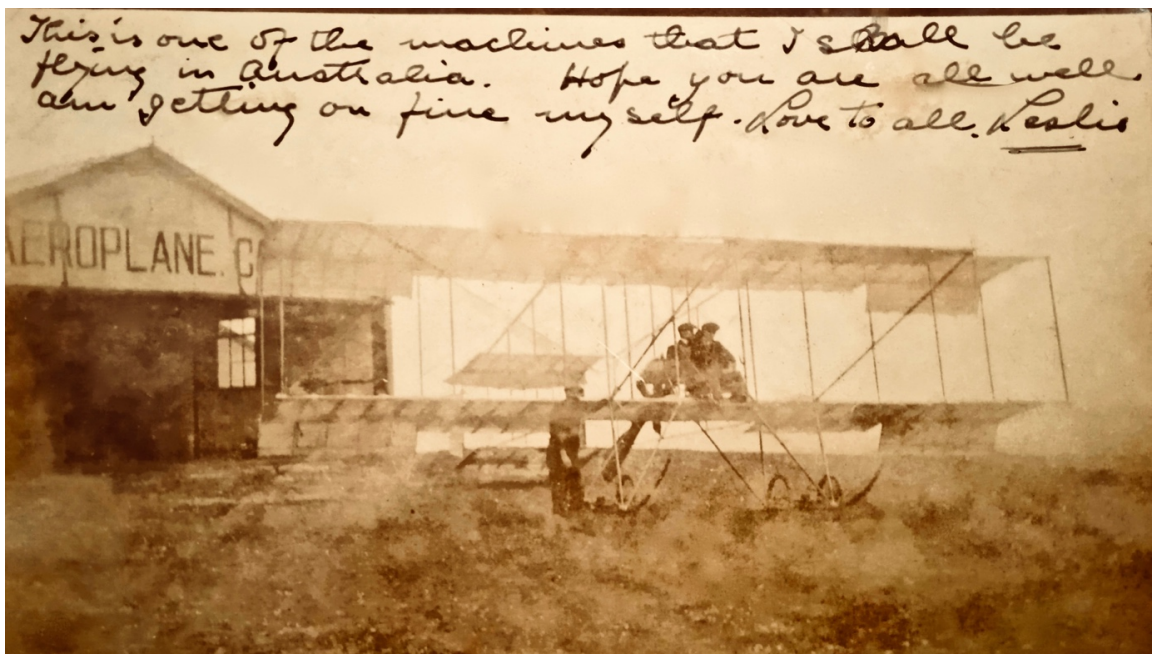 This is one of the machines that I shall be
flying in Australia. Hope you are all well.
am getting on fine myself. Love to all. Leslie
AEROPLANE. C